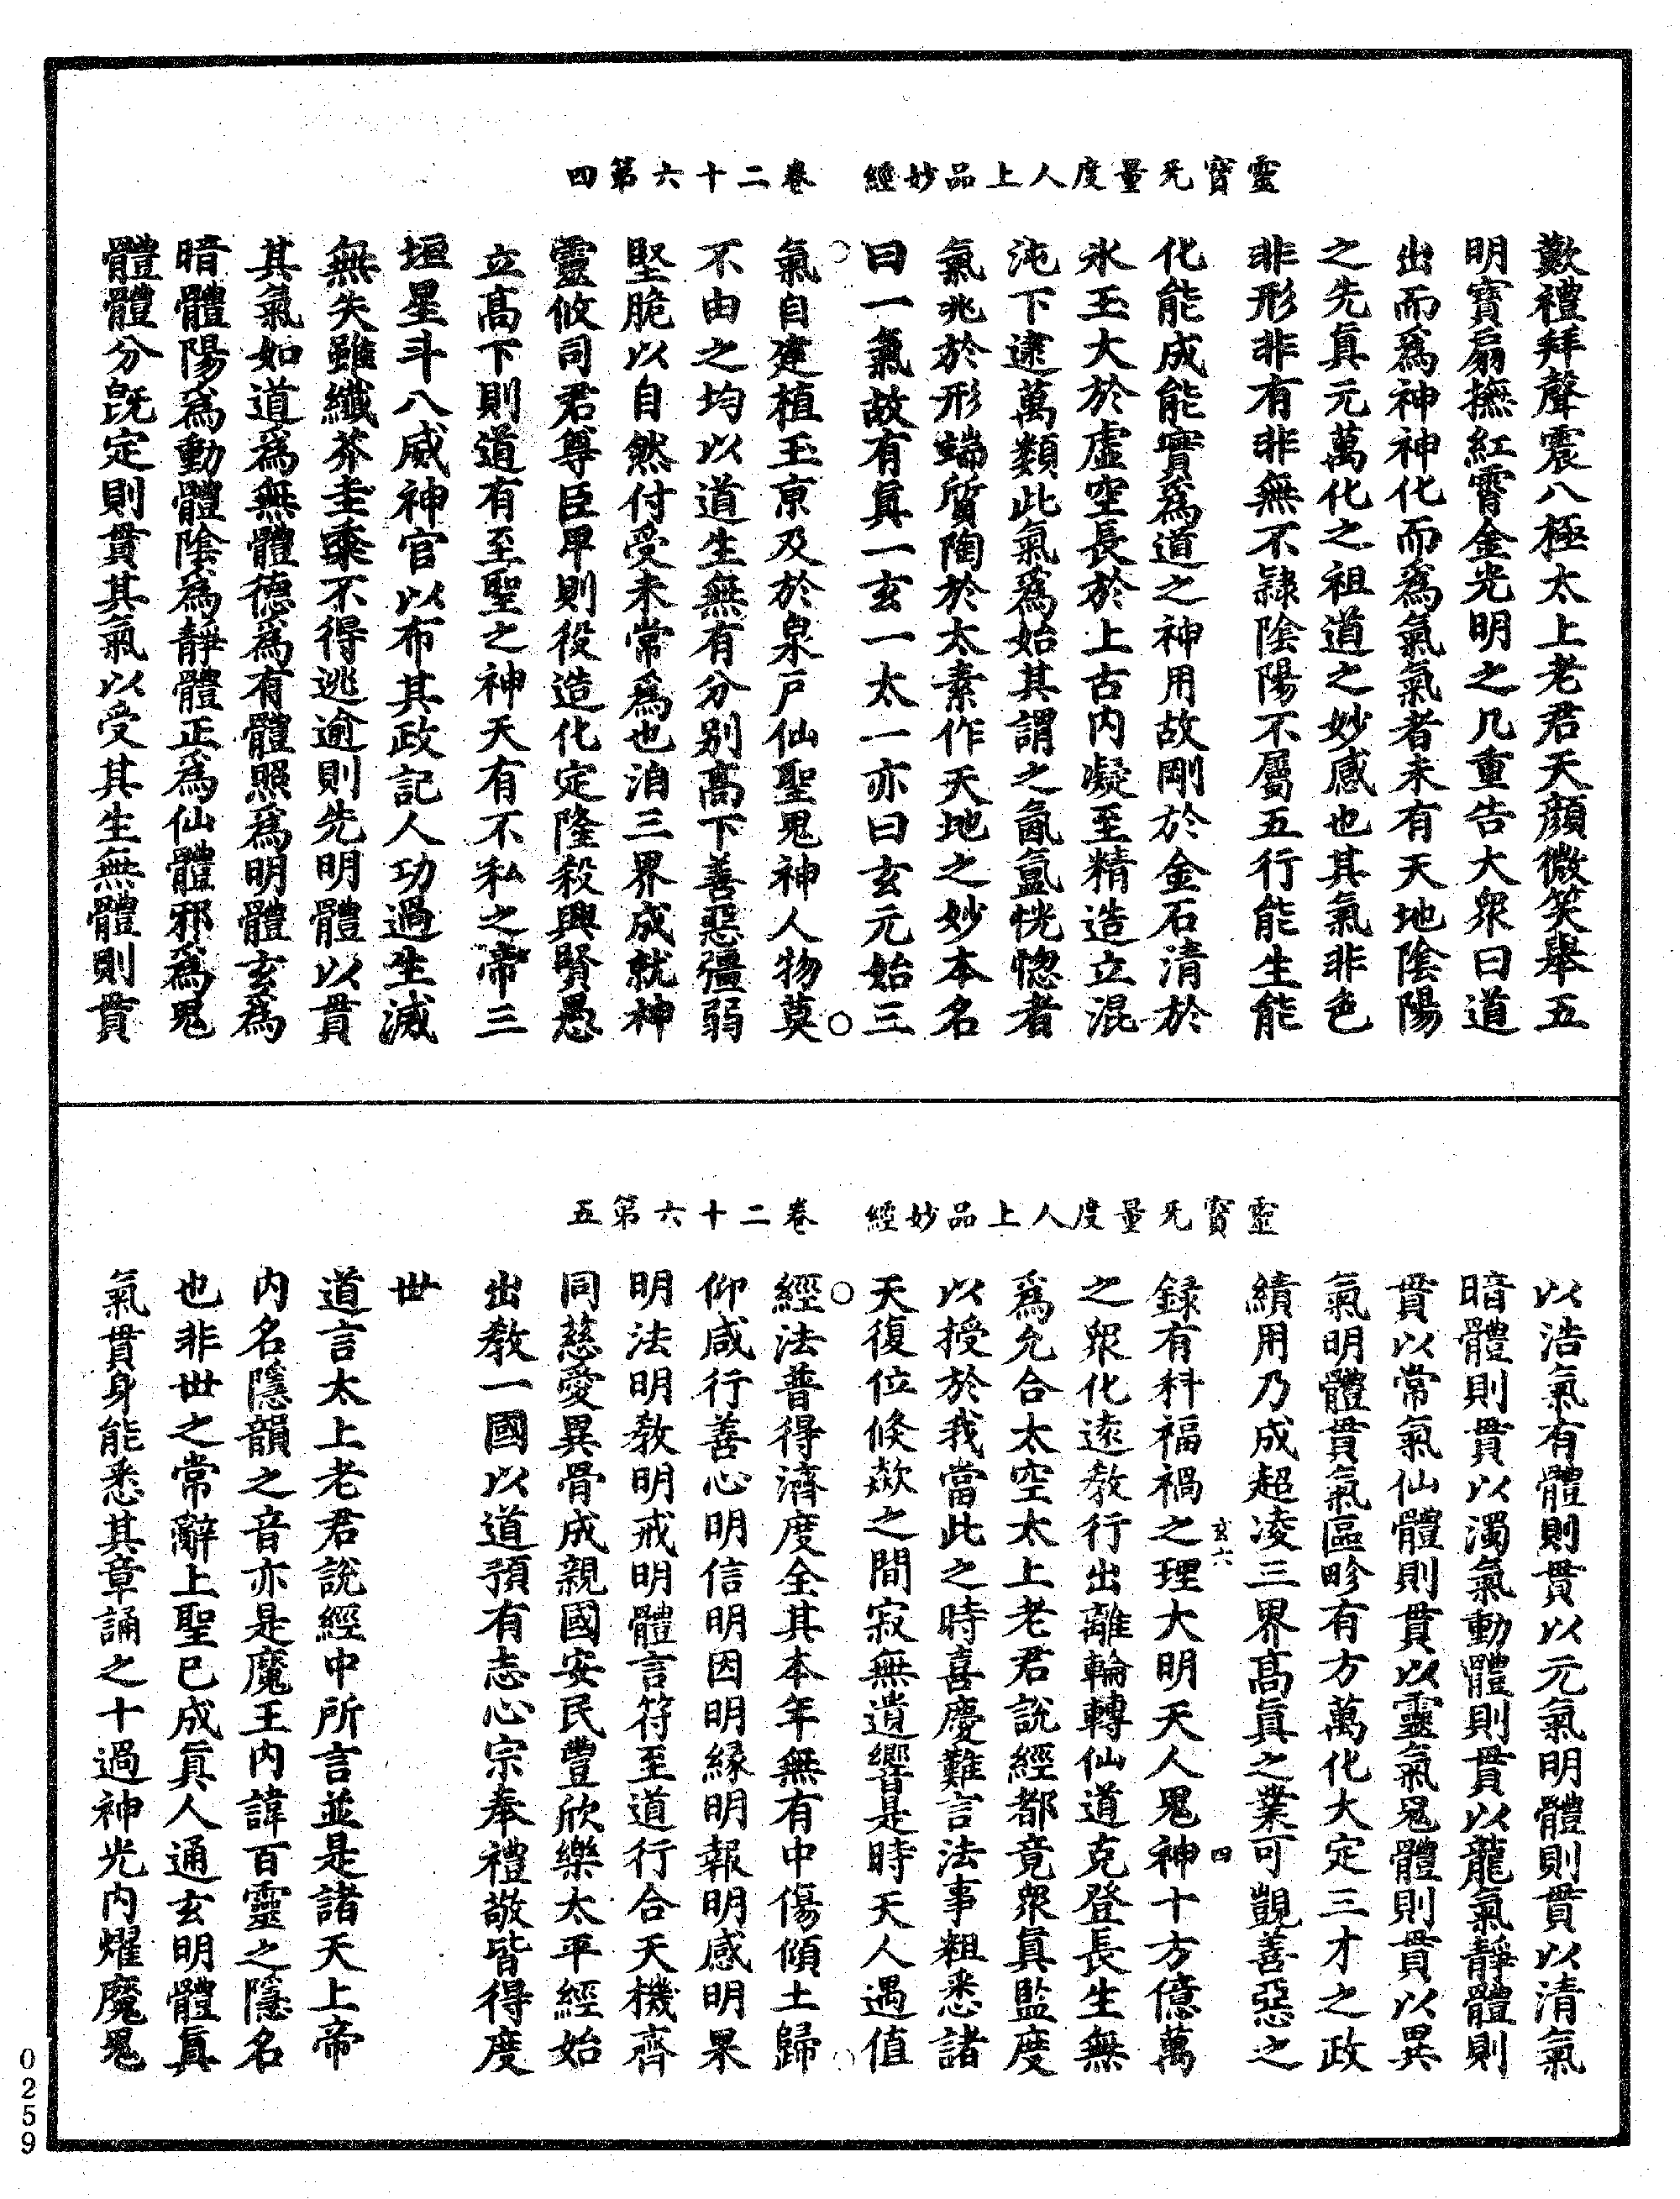 靈寶无量度人上品妙經　卷二十六第四
歎禮拜聲震八極太上老君天顏微笑舉五
明寶扇撫紅霄金光明之几重告大眾曰道
出而爲神神化而爲氣氣者未有天地陰陽
之先真元萬化之祖道之妙感也其氣非色
非形非有非無不隸陰陽不屬五行能生能
化能成能實爲道之神用故剛於金石清於
氷玉大於虛空長於上古內凝至精造立混
沌下逮萬類此氣爲始其謂之氤氳恍惚者
氣兆於形端質陶於太素作天地之妙本名
曰一氣故有真一玄一太一亦曰玄元始三
氣自建植玉京及於泉戶仙聖鬼神人物莫
不由之均以道生無有分別高下善惡彊弱
堅脆以自然付受未常爲也洎三界成就神
靈攸司君尊臣卑則役造化定隆殺興賢愚
立高下則道有至聖之神天有不私之帝三
垣星斗八威神官以布其政記人功過生滅
無失雖纖芥圭黍不得逃逾則先明體以貫
其氣如道爲無體德爲有體照爲明體玄爲
暗體陽爲動體陰爲靜體正爲仙體邪爲鬼
體體分既定則貫其氣以受其生無體則貫
靈寶无量度人上品妙經　卷二十六第五
以浩氣有體則貫以元氣明體則貫以清氣
暗體則貫以濁氣動體則貫以龍氣靜體則
貫以常氣仙體則貫以靈氣鬼體則貫以異
氣明體貫氣區畛有方萬化大定三才之政
績用乃成超凌三界高真之業可覬善惡之
玄六　四
錄有科福禍之理大明天人鬼神十方億萬
之眾化遠教行出離輪轉仙道克登長生無
爲允合太空太上老君說經都竟眾真監度
以授於我當此之時喜慶難言法事粗悉諸
天復位倏歘之間寂無遺響是時天人遇值
經法普得濟度全其本年無有中傷傾土歸
仰咸行善心明信明因明緣明報明感明果
明法明教明戒明體言符至道行合天機齊
同慈愛異骨成親國安民豐欣樂太平經始
出教一國以道預有志心宗奉禮敬皆得度
世
道言太上老君說經中所言並是諸天上帝
內名隱韻之音亦是魔王內諱百靈之隱名
也非世之常辭上聖已成真人通玄明體真
氣貫身能悉其章誦之十過神光內燿魔鬼
0259